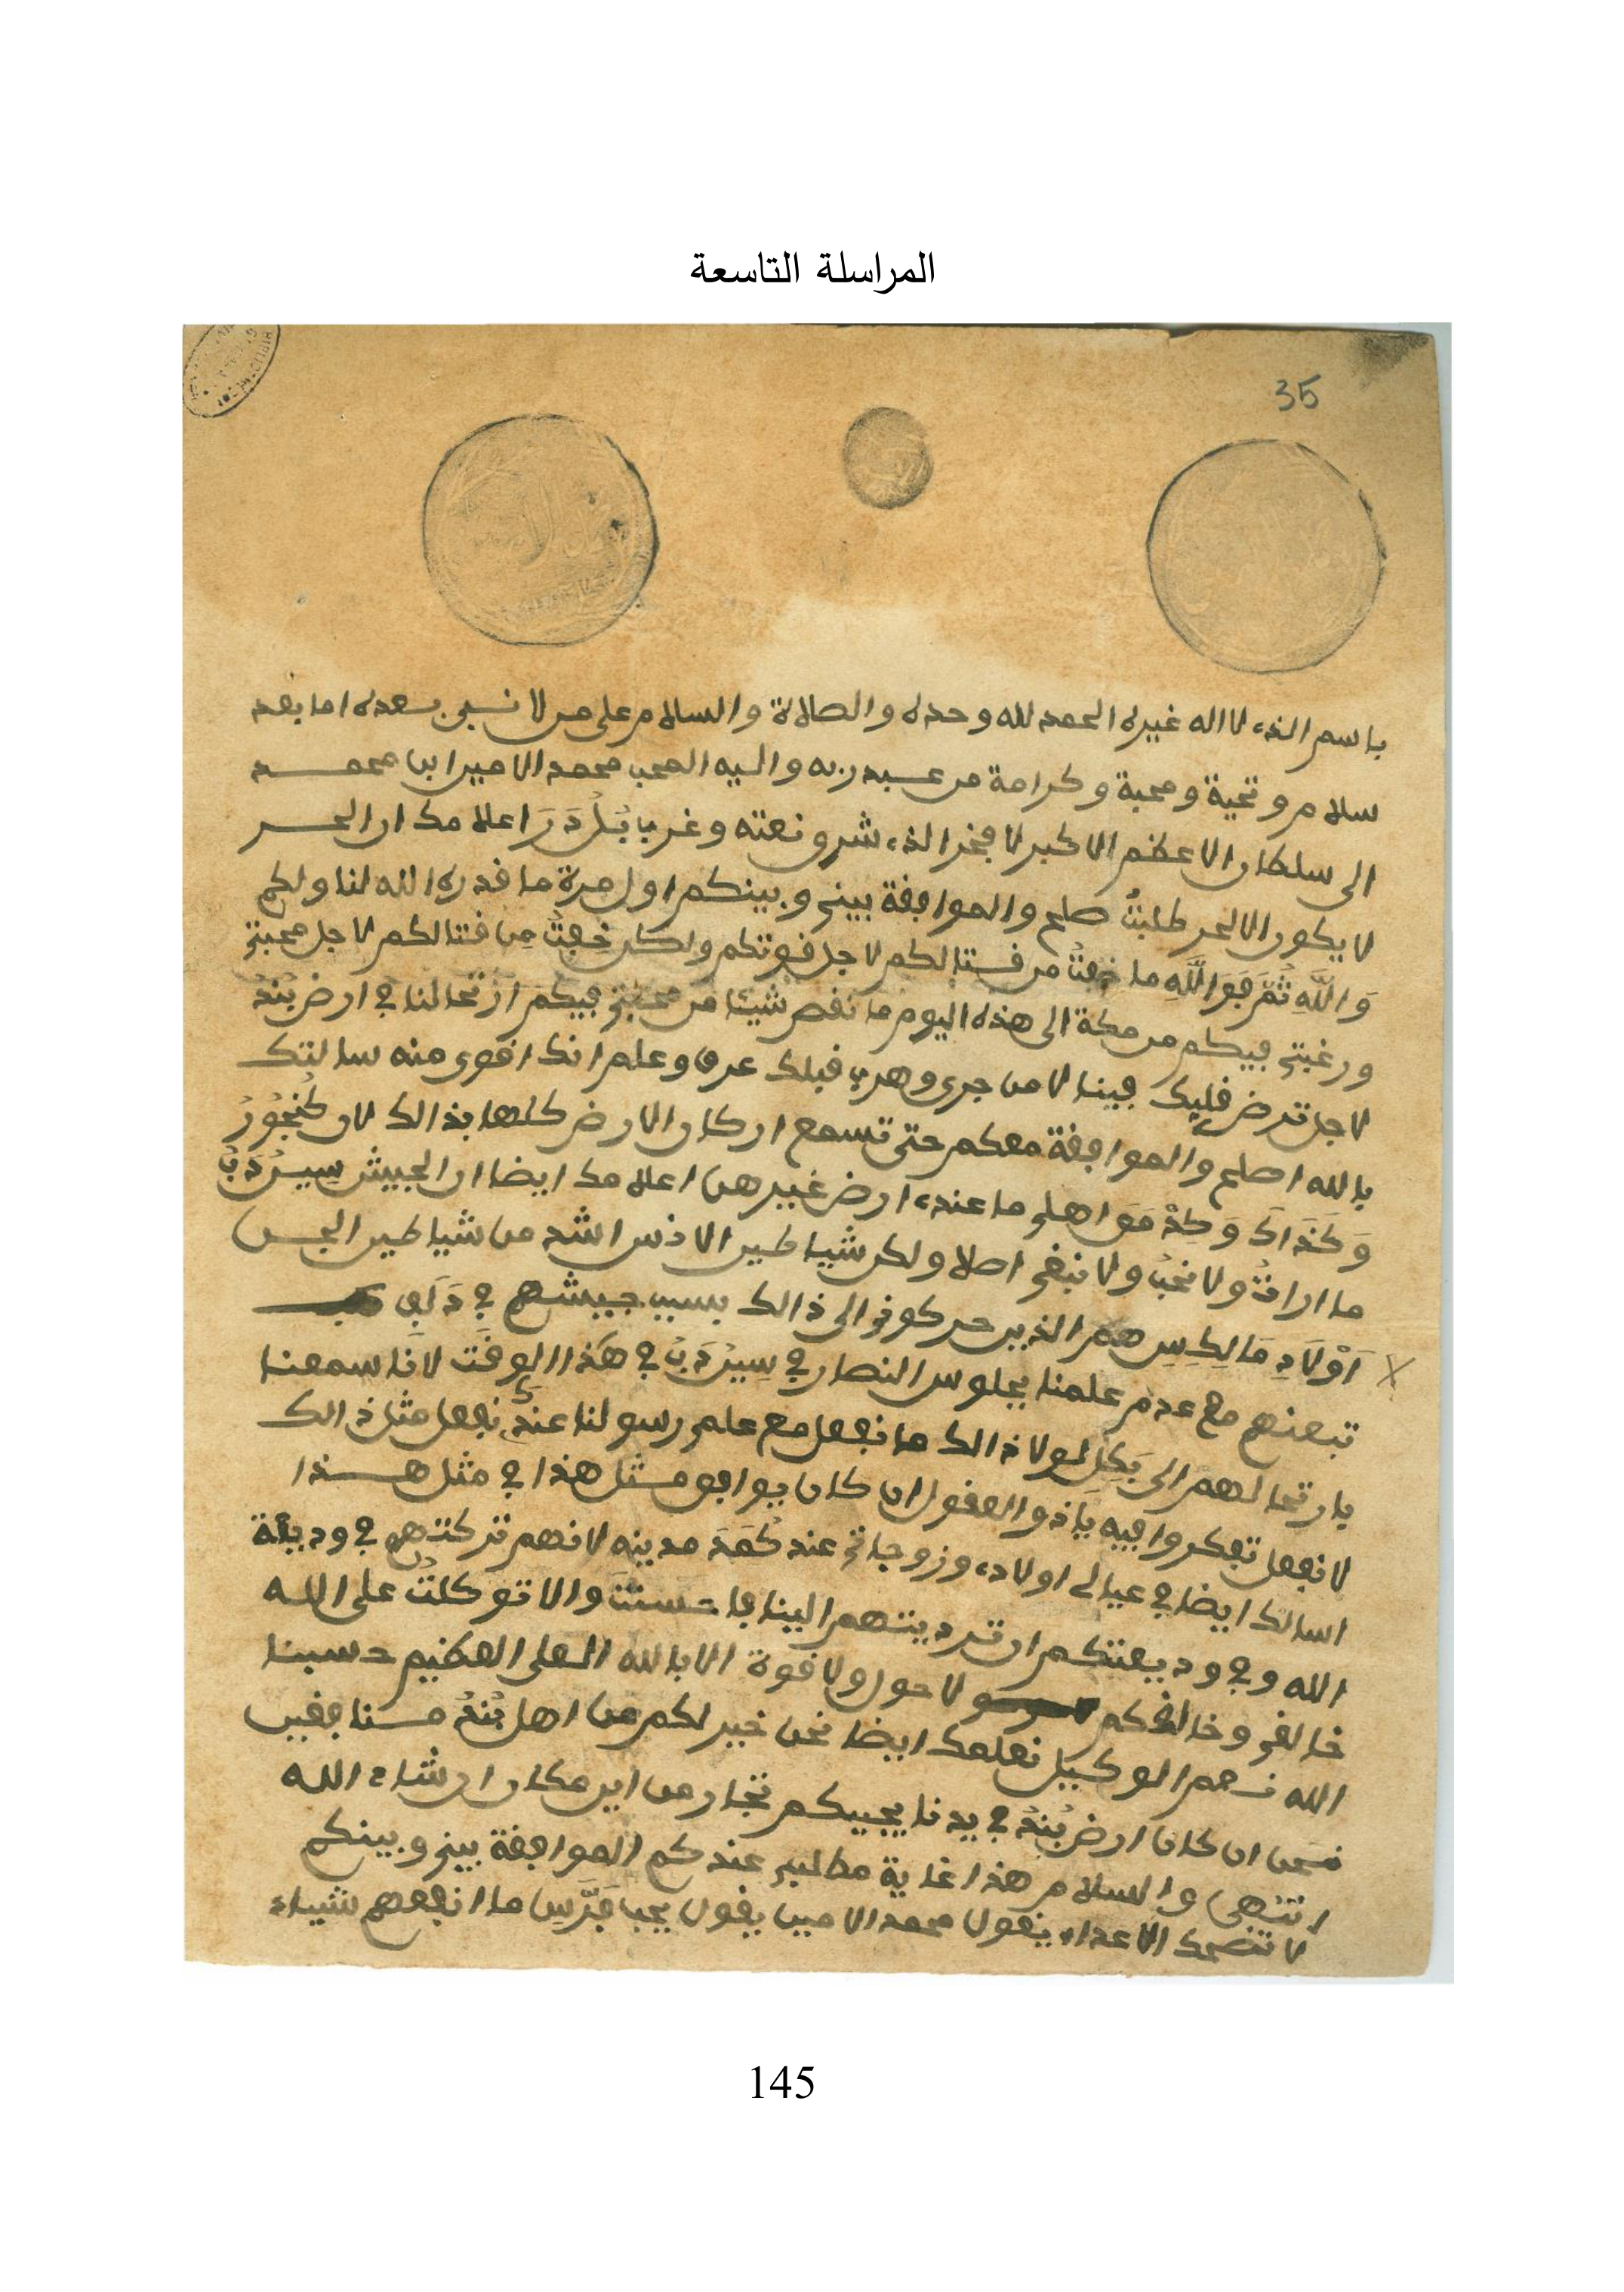 المراسلة التاسعة
35
باسم الذي لا اله غيره الحمد لله وحده والصلاة والسلام على من لا نبي بعده اما بعد
سلام وتحية ومحبة وكرامة من عبد ربه واليه المحب محمد الامين ابن محمد
الى سلطان الاعظم الاكبر لا فخر الذي شرق نعته وغرب اعلامك ان الحر
لا يكون الا لحر طلبتُ صلح والموافقة بيني وبينكم اول مرة ما قدره الله لنا ولكم
وَاللَّهِ ثُمَّ فَوَاللَّهِ ما خفتُ من قتالكم لاجل قوتكم ولكن خِفتُ مِن قتالكم لاجل محبتي
ورغبتي فيكم من مكة الى هذه اليوم ما نقص شيئا من محبتي فيكم ارتحالنا في ارض بُنْدُ
لاجل ترض قلبك فينا لا من جرى وهرب قبلك عرف وعلم انك اقوى منه سالتك
بالله اصلح والموافقة معكم حتى تسمع اركان الارض كلها بذالك لان كُنْجُورُ
وَكَذَاكَ وَكذْ مَوَ اهلي ما عندي ارض غيرهن اعلامك ايضا ان الجيش سِيرْدَبُ
ما ارادتُ ولا نحبُ ولا نبغى اصلا ولكن شياطين الانس اشد من شياطين الجن
اَوْلَادِ مَالِكِسِ هم الذين حركوني الى ذالك بسبب جيشهم في
تبعنهم مع عدم علمنا بجلوس النصار في سِيرْدَبُ في هَذا الوقَت لانَا سمعنا
بارتحالهم الى بَكِلِ لولا ذالك ما نفعل مع علم رسولنا عندك نفعل مثل ذالك
لا نفعل تفكروا فيه ياذو العقول ان كان يوافق مثل هذا في مثل هذا
اسالك ايضا في عيالي اولادي وزوجاتي عند كُمَدَ مدينه لانهم تركتهم في وديعة
الله وفي وديعتكم ان ترديتهم الينا والا توكلتُ على الله
خالقي وخالقكم ولا حول ولا قوة الا بالله العلي العظيم حسبنا
الله نعم الوكيل نعلمك ايضا نحن خير لكم من اهل بُنْدُ منافقين
نحن ان كان ارض بُنْدُ في يدنا يجيبكم تجار من اين مكان ان شاء الله
انتهى والسلام هذا غاية مطلبي عندكم الموافقة بيني وبينكم
لا تضحك الاعداء يقول محمد الامين يقول يحب ما انفعهم شيياء
145